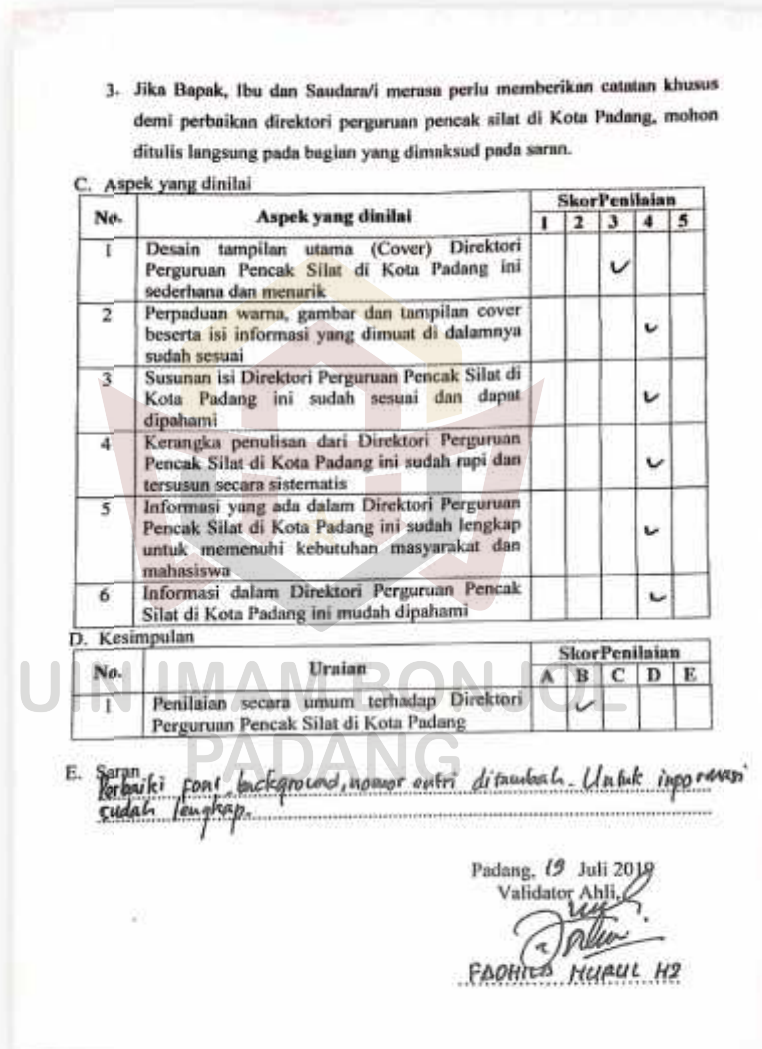 3. Jika Bapak, Ibu dan Saudara/i merasa perlu memberikan catatan khusus
demi perbaikan direktori perguruan pencak silat di Kota Padang, mohon
ditulis langsung pada bagian yang dimaksud pada saran.
C. Aspek yang dinilai
No. Aspek yang dinilai SkorPenilaian
1 2 3 4 5
1 Desain tampilan utama (Cover) Direktori
Perguruan Pencak Silat di Kota Padang ini ✓
sederhana dan menarik
2 Perpaduan warna, gambar dan tampilan cover
beserta isi informasi yang dimuat di dalamnya ✓
sudah sesuai
3 Susunan isi Direktori Perguruan Pencak Silat di
Kota Padang ini sudah sesuai dan dapat ✓
dipahami
4 Kerangka penulisan dari Direktori Perguruan
Pencak Silat di Kota Padang ini sudah rapi dan ✓
tersusun secara sistematis
5 Informasi yang ada dalam Direktori Perguruan
Pencak Silat di Kota Padang ini sudah lengkap ✓
untuk memenuhi kebutuhan masyarakat dan
mahasiswa
6 Informasi dalam Direktori Perguruan Pencak ✓
Silat di Kota Padang ini mudah dipahami
D. Kesimpulan
No. Uraian SkorPenilaian
A B C D E
1 Penilaian secara umum terhadap Direktori ✓
Perguruan Pencak Silat di Kota Padang
UIN IMAM BONJOL
PADANG
E. Saran
Perbaiki font, background, nomor entri ditambah. Untuk inpormasi
sudah lengkap.
Padang, 19 Juli 2019
Validator Ahli,
FADHILA NURUL